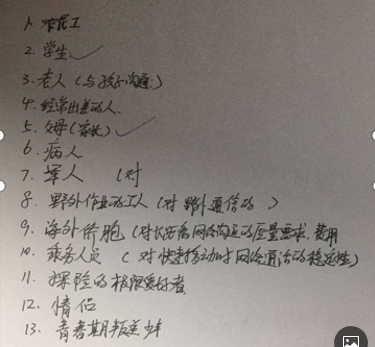 1. 农民工
2. 学生
3. 老人 (与孩子沟通)
4. 经常出差的人.
5. 父母 (家长)
6. 病人
7. 军人 (对
8. 野外作业的工人 (对 野外通信的 )
9. 海外侨胞 (对长距离网络沟通的质量需求,费用
10. 乘务人员 (对快速移动时网络通话的稳定性)
11. 探险的极限爱好者
12. 情侣
13. 青春期叛逆少年